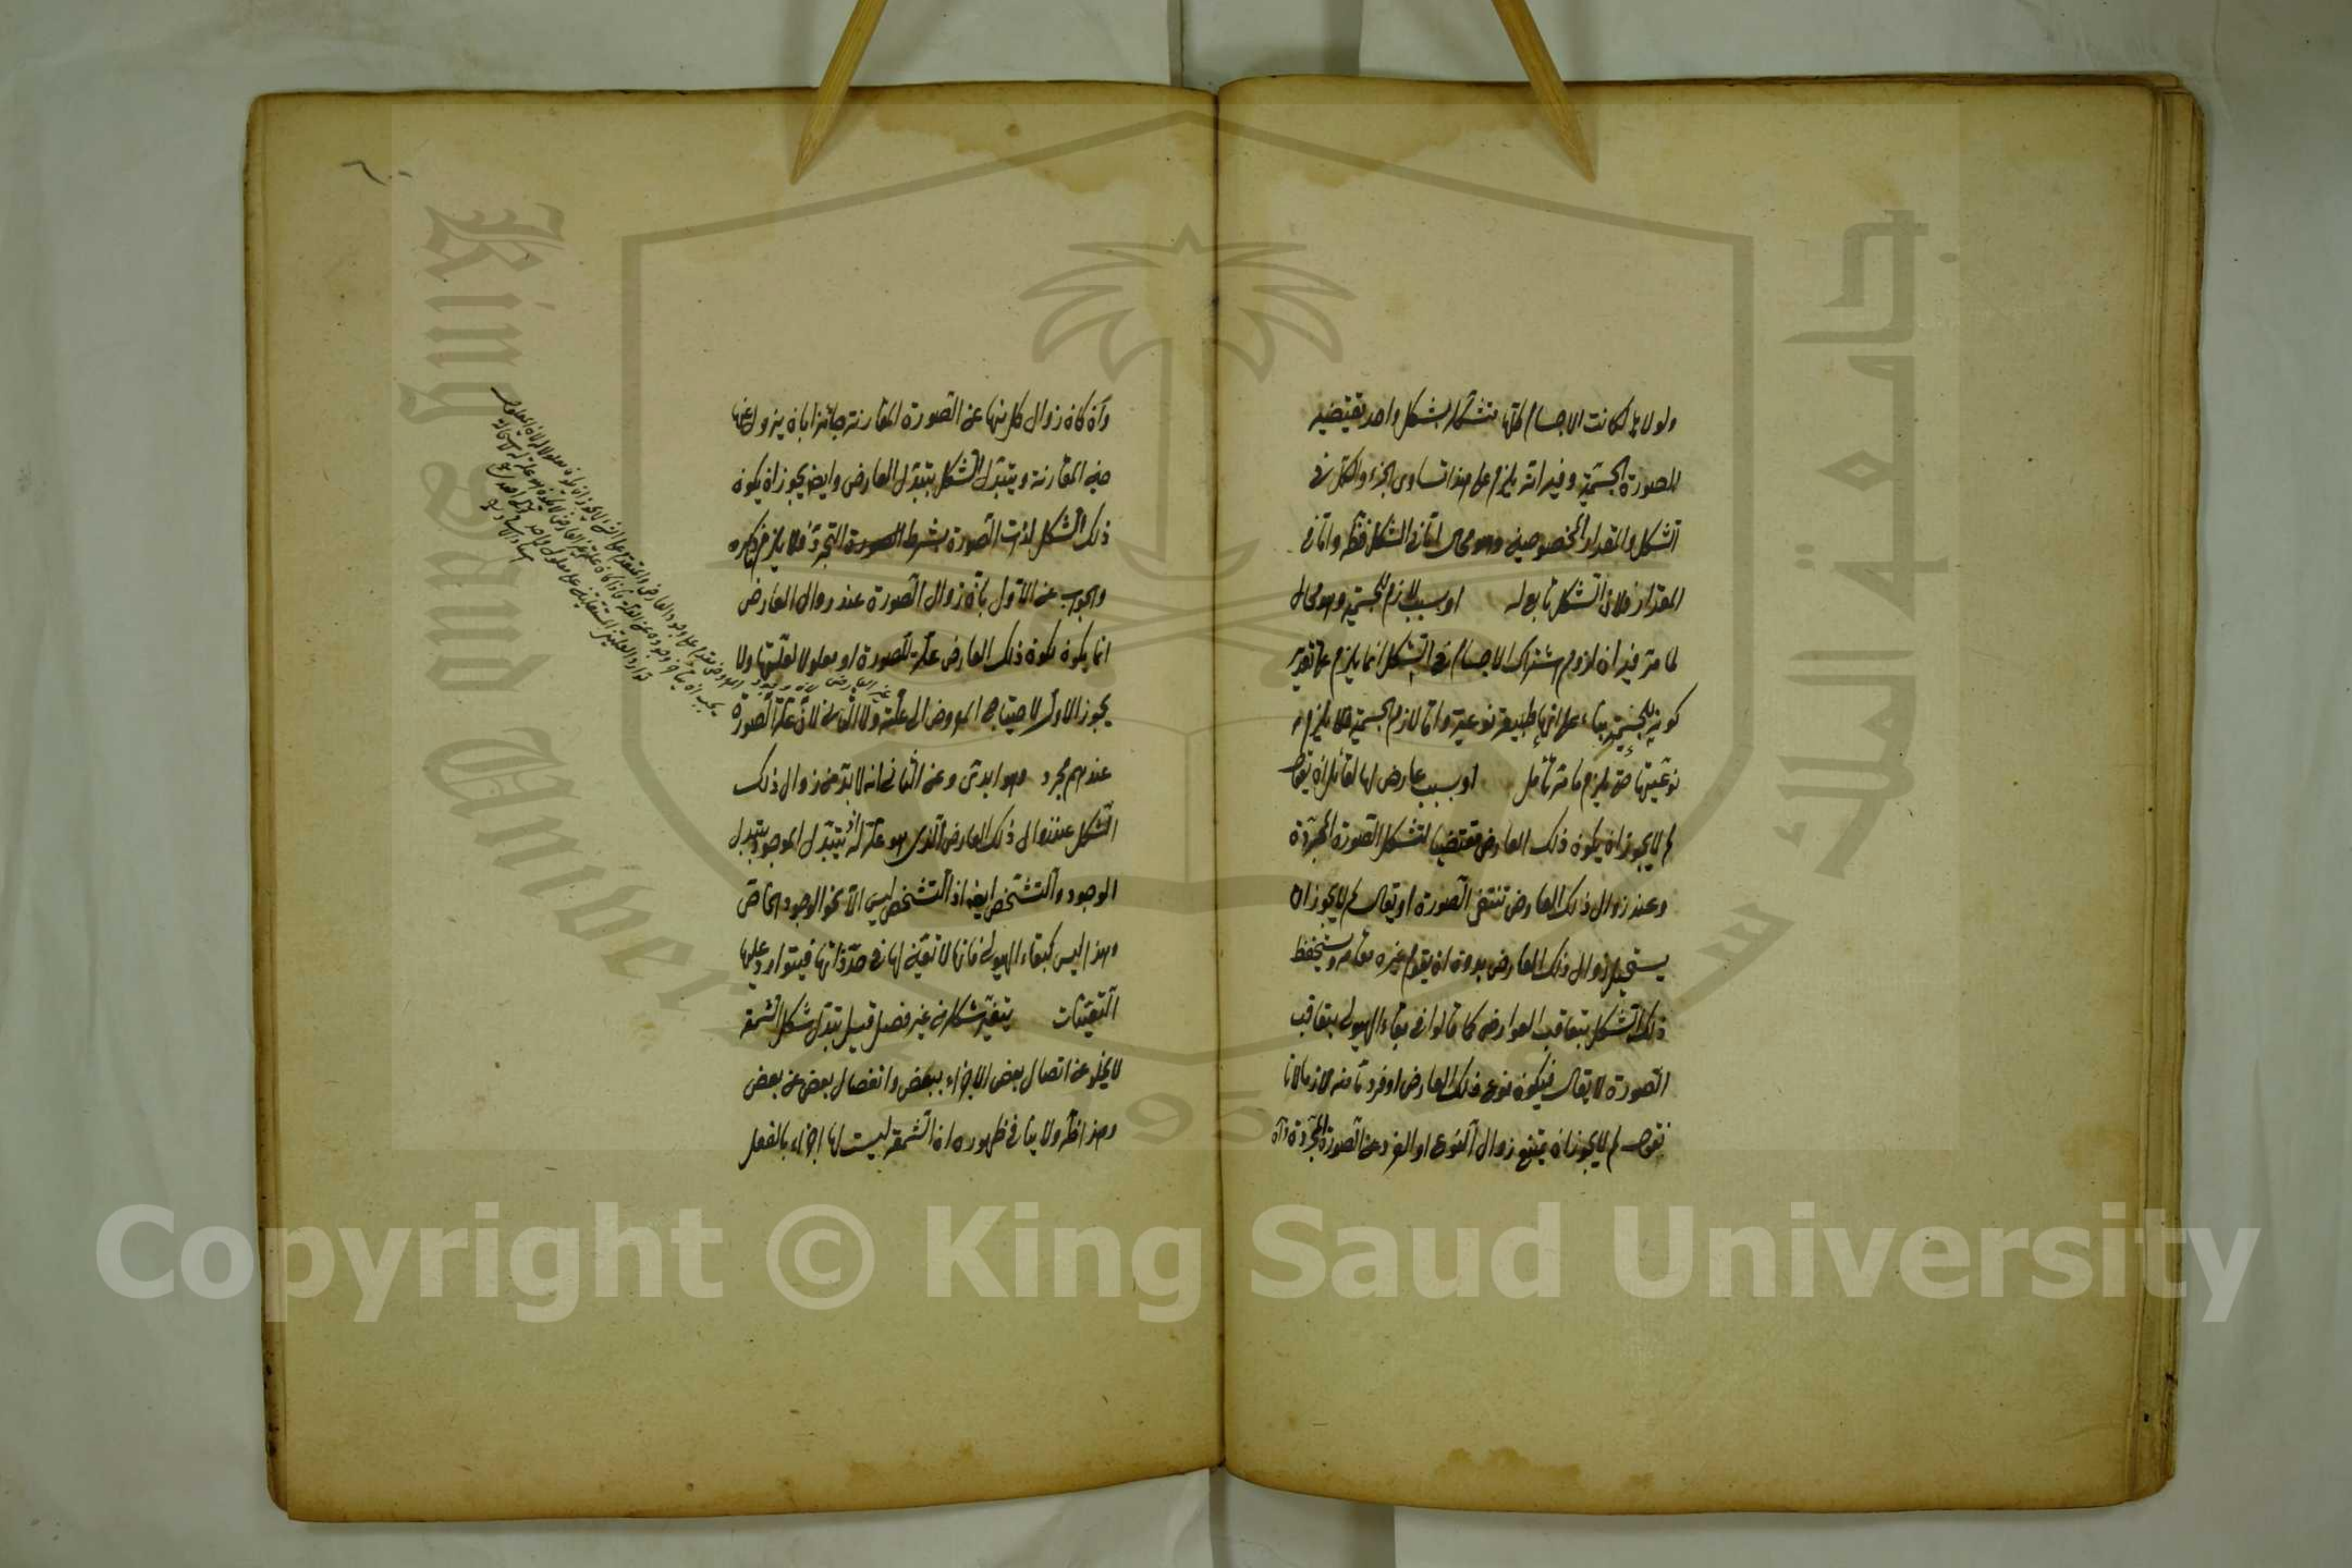 ولولاها لكانت الاجسام كلها متشكلة بشكل واحد تقتضيه
الصورة الجسمية وفيه انه يلزم على هذا تساوى الجزء والكل فى
الشكل والمقدار المخصوصين وهو محال اما فى الشكل فظ واما فى
المقدار فلان الشكل تابع له او بسبب لازم للجسمية وهو محال
لما مر فيه ان لزوم اشتراك الاجسام فى الشكل انما يلزم على تقدير
كونه للجسمية بناء على انها طبيعة نوعية واما لازم الجسمية فلا يلزم
نوعيتها حتى يلزم ما مر تأمل او بسبب عارض لها لقائل ان يقول
لم لا يجوز ان يكون ذلك العارض مقتضيا لتشكل الصورة المجردة
وعند زوال ذلك العارض تنتفى الصورة او يقال لم لا يجوز ان
يستحيل زوال ذلك العارض بدون ان يقوم غيره مقامه ويستحفظ
ذلك الشكل بتعاقب العوارض كما قالوا فى بقاء الهيولى بتعاقب
الصورة لا يقال فيكون نوع ذلك العارض او فرد ما منه لازما لانا
نقول لم لا يجوز ان يمتنع زوال النوع او الفرد عن الصورة المجردة
وان كان زوال كل منها عن الصورة المقارنة جائزا بان يزول عنها
حين المقارنة ويتبدل الشكل بتبدل العارض وايضا يجوز ان يكون
ذلك الشكل لذات الصورة بشرط التجرد فلا يلزم ما ذكره
والجواب عن الاول بان زوال الصورة عند زوال العارض
انما يكون لكون ذلك العارض علة للصورة او معلولا لعلتها ولا
يجوز الاول لاحتياج المعروض الى علته ولا الثانى لان علة الصورة
عندهم مجرد وهو ابدى وعن الثانى انه لا بد من زوال ذلك
الشكل عند زوال ذلك العارض الذى هو علة له اذ يتبدل الموجود بتبدل
الوجود والتشخص ايضا اذ التشخص ليس الا نحو الوجود الخاص
وهذا ليس كبقاء الهيولى فانها لا تعين لها فى حد ذاتها فيتوارد عليها
التعينات يتغير شكله من غير فصل قيل تبدل شكل الشمعة
لا يخلو عن اتصال بعض الاجزاء ببعض وانفصال بعض عن بعض
وهذا ظ ولا ينافى ظهوره ان الشمعة ليست لها اجزاء بالفعل
King Saud University
جامعة الملك سعود
195
Copyright © King Saud University